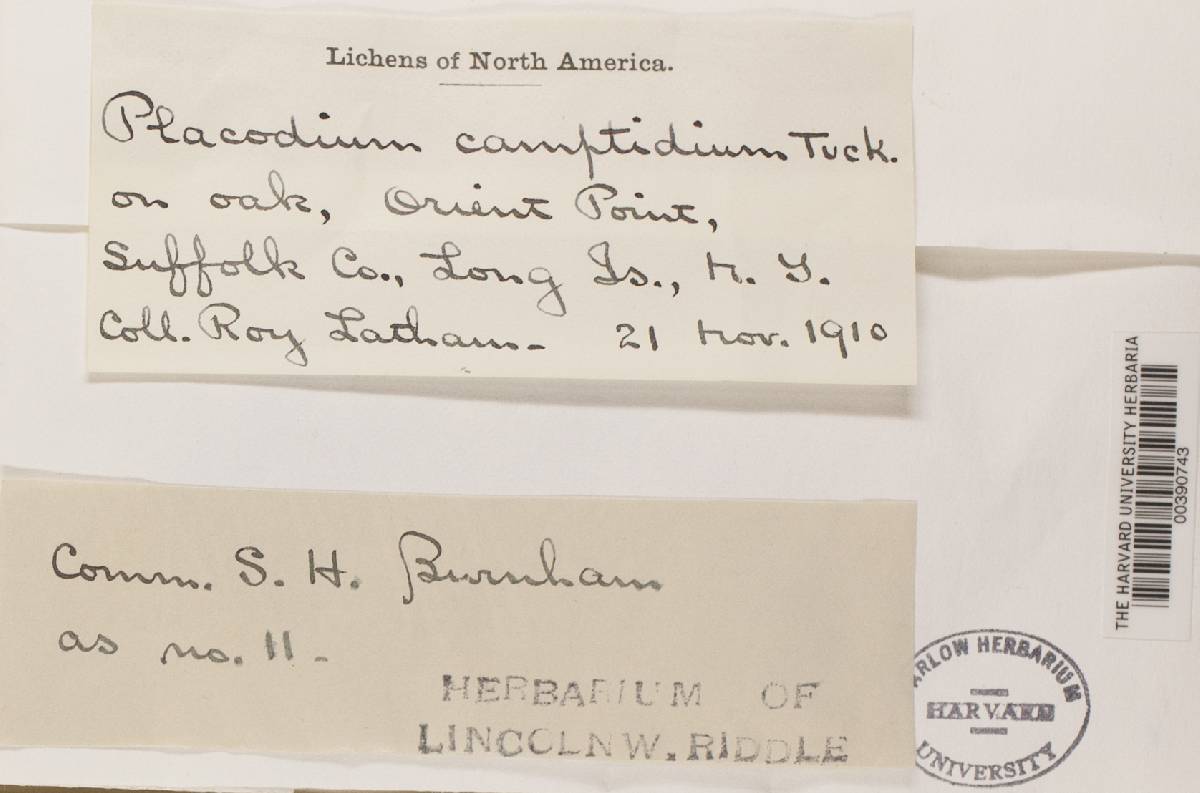 Lichens of North America.
Placodium camptidium Tuck.
on oak, Orient Point,
Suffolk Co., Long Is., N. Y.
Coll. Roy Latham. 21 Nov. 1910
Comm. S. H. Burnham
as no. 11.
HERBARIUM OF
LINCOLN W. RIDDLE
ARLOW HERBARIUM
HARVARD
UNIVERSITY
THE HARVARD UNIVERSITY HERBARIA
00390743